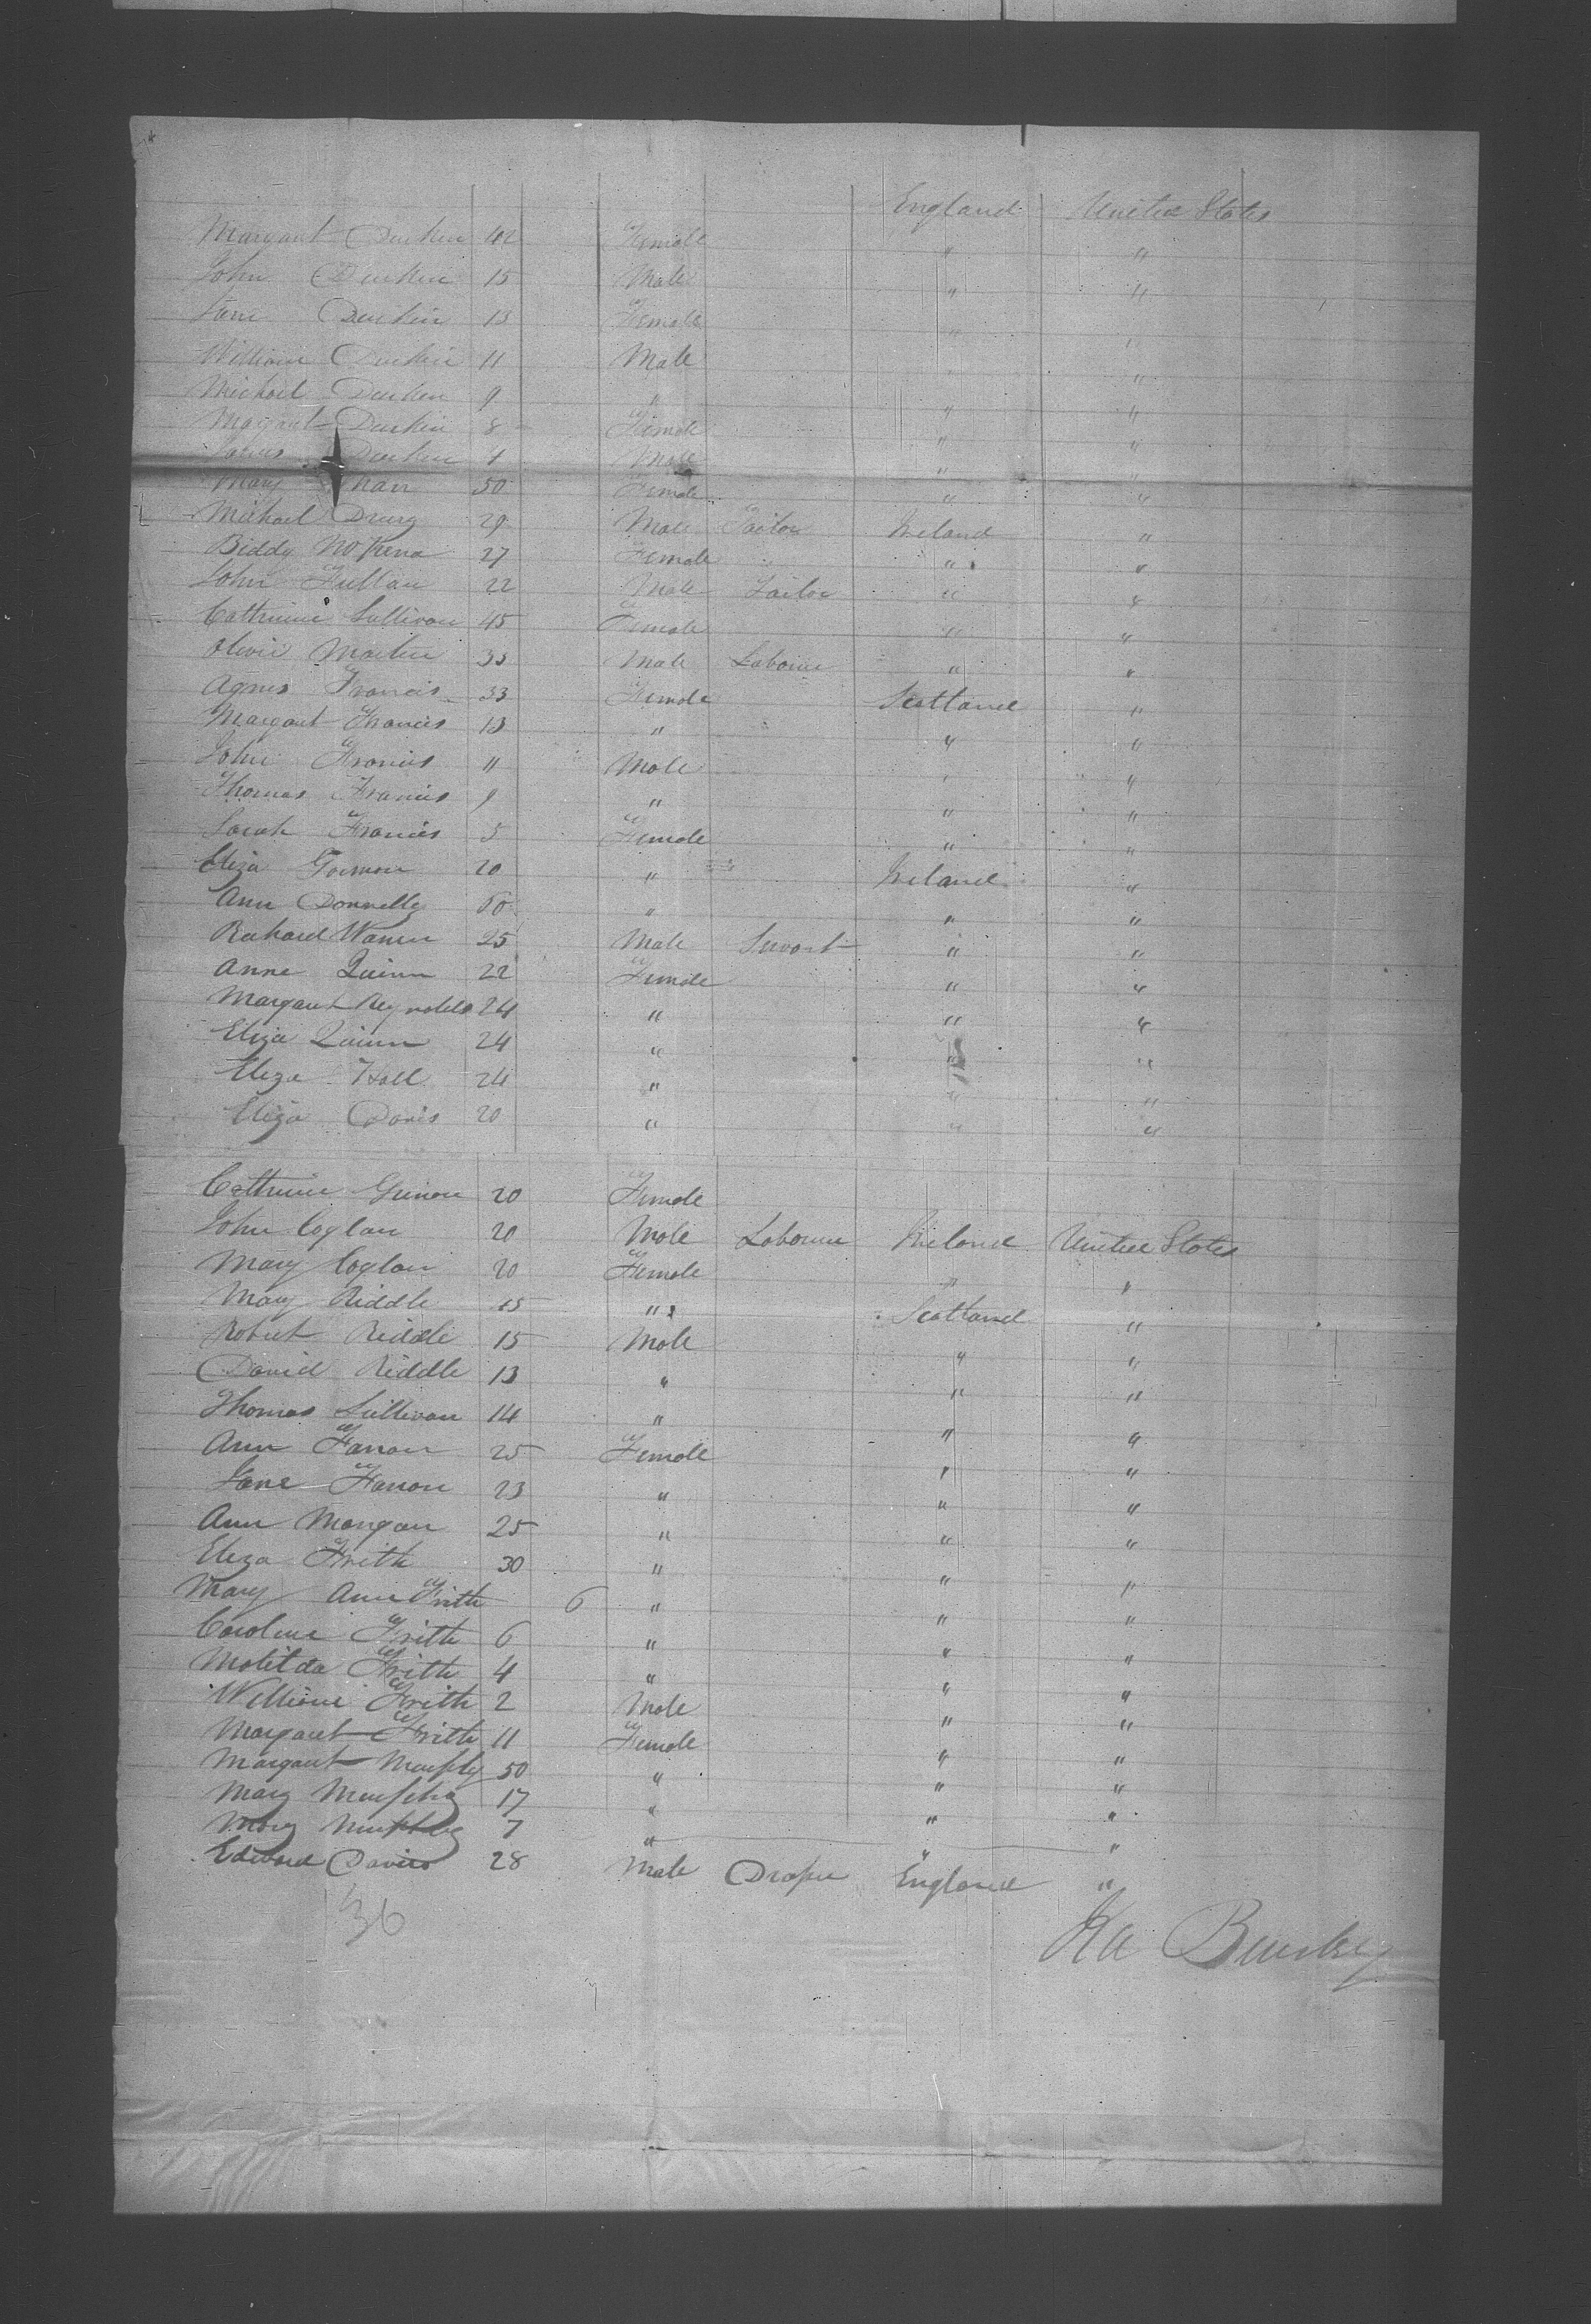 England United States
Margaret Durkin 42 Female " "
John Durkin 15 Male " "
Jane Durkin 13 Female " "
William Durkin 11 Male " "
Michael Durkin 9 " " "
Margaret Durkin 8 Female " "
James Durkin 4 Male " "
Mary 50 Female " "
Michael Drury 29 Male Tailor Ireland "
Biddy 27 Female " "
John 22 Male Tailor " "
Cathrine Sullivan 45 Female " "
Oliver Martin 33 Male Laborer " "
Agnes Francis 33 Female Scotland "
Margaret Francis 13 " " "
John Francis 11 Male " "
Thomas Francis 9 " " "
Sarah Francis 5 Female " "
Eliza Gorman 20 " Ireland "
Ann Donnelly 60 " " "
Richard Warren 25 Male Servant " "
Anne Quinn 22 Female " "
Margaret Reynolds 24 " " "
Eliza Quinn 24 " " "
Eliza Hall 24 " " "
Eliza Davis 20 " " "
Cathrine 20 Female
John Coglan 20 Male Laborer Ireland United States
Mary Coglan 20 Female " "
Mary Riddle 45 " Scotland "
Robert Riddle 15 Male " "
David Riddle 13 " " "
Thomas Sullivan 14 " " "
Ann Fanon 25 Female " "
Jane Fanon 23 " " "
Ann Mangan 25 " " "
Eliza Frith 30 " " "
Mary Ann Frith 6 " " "
Caroline Frith 6 " " "
Matilda Frith 4 " " "
William Frith 2 Male " "
Margaret Frith 11 Female " "
Margaret Murphy 50 " " "
Mary Murphy 17 " " "
Mary Murphy 7 " " "
Edward Davies 28 Male Draper England "
36